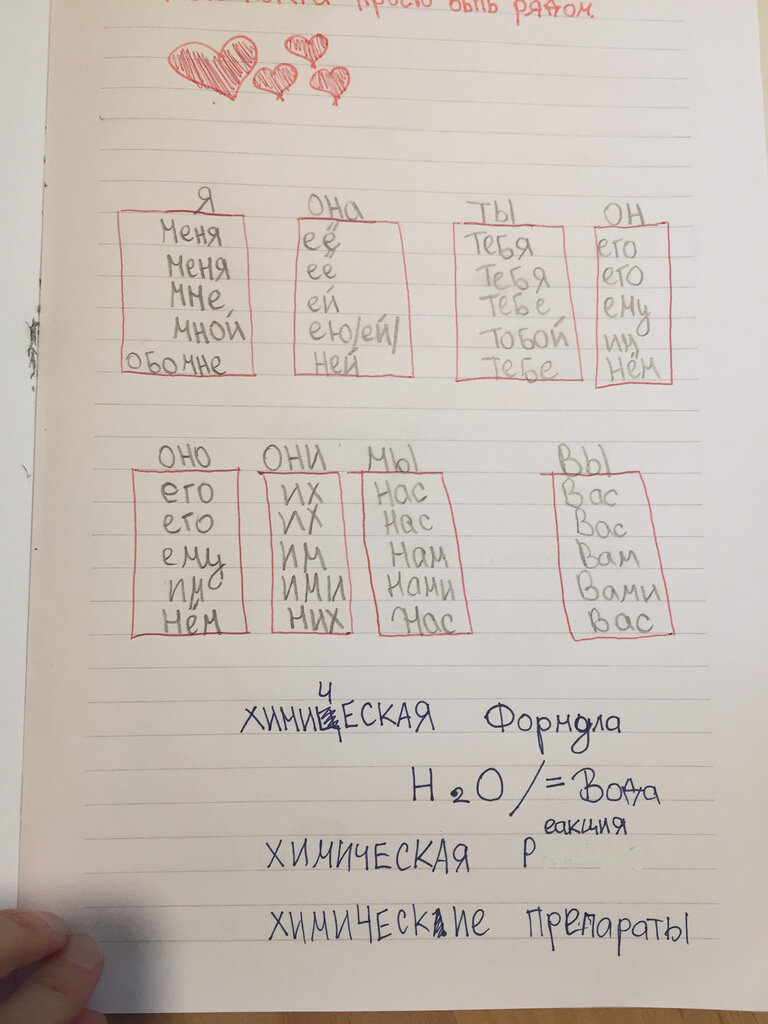 просто быть рядом.
Я она ты он
меня её тебя его
меня её тебя его
мне ей тебе ему
мной ею/ей/ тобой им
обо мне ней тебе нём
оно они мы вы
его их нас Вас
его их нас Вас
ему им нам Вам
им ими нами Вами
нём них нас Вас
ХИМИЧЕСКАЯ Формула
H₂O /= Вода
ХИМИЧЕСКАЯ Реакция
ХИМИЧЕСКИЕ препараты